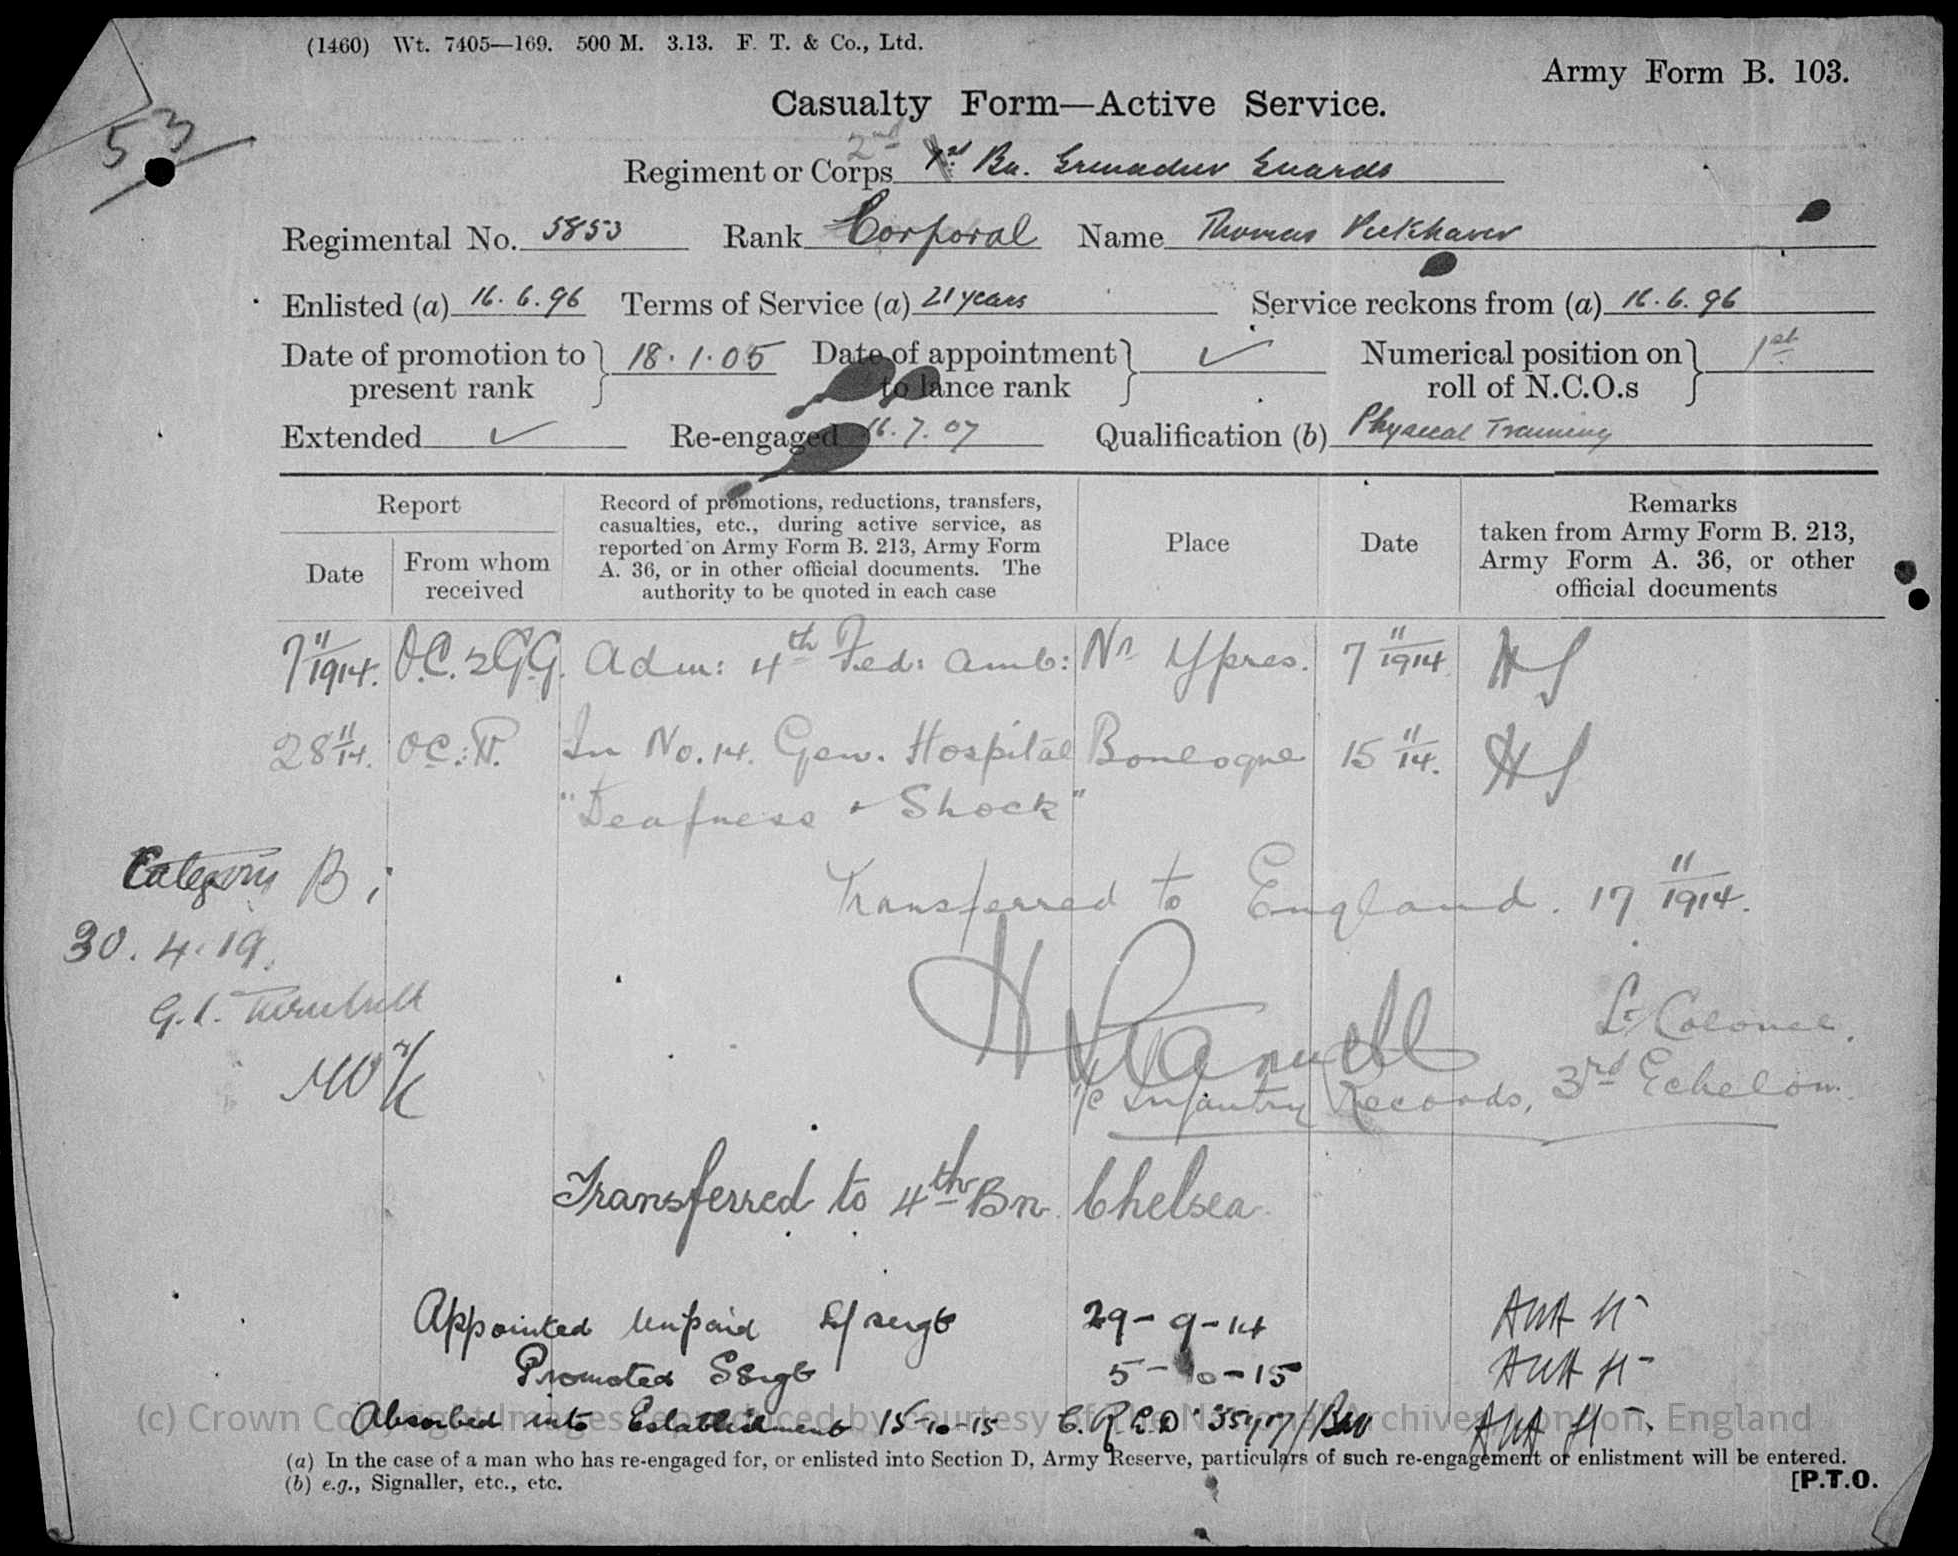 (1460) Wt. 7405—169. 500 M. 3.13. F. T. & Co., Ltd.
Army Form B. 103.
53
Casualty Form—Active Service.
2nd
Regiment or Corps Bn. Grenadier Guards
Regimental No. 5853 Rank Corporal Name Thomas
Enlisted (a) 16.6.96 Terms of Service (a) 21 years Service reckons from (a) 16.6.96
Date of promotion to present rank } 18.1.05 Date of appointment to lance rank } ✓ Numerical position on roll of N.C.O.s } 1st
Extended ✓ Re-engaged 16.7.07 Qualification (b) Physical Training
Report
Date
From whom received
Record of promotions, reductions, transfers,
casualties, etc., during active service, as
reported on Army Form B. 213, Army Form
A. 36, or in other official documents. The
authority to be quoted in each case
Place
Date
Remarks
taken from Army Form B. 213,
Army Form A. 36, or other
official documents
7 11/1914. O.C. 2 G.G. Adm: 4th Fed: Amb: Nr Ypres. 7 11/1914
28 11/14. In No. 14. Gen. Hospital Boulogne 15 11/14.
"Deafness & Shock"
Category B i
Transferred to England. 17 11/1914.
30.4.19.
G.L. Turnbull
Lt Colonel.
i/c Infantry Records, 3rd Echelon.
Transferred to 4th Bn. Chelsea
Appointed unpaid L/sergt 29-9-14
Promoted Sergt 5-10-15
Absorbed into Establishment 15-10-15
(c) Crown Copyright Images reproduced by courtesy of The National Archives, London, England
(a) In the case of a man who has re-engaged for, or enlisted into Section D, Army Reserve, particulars of such re-engagement or enlistment will be entered.
(b) e.g., Signaller, etc., etc.
[P.T.O.